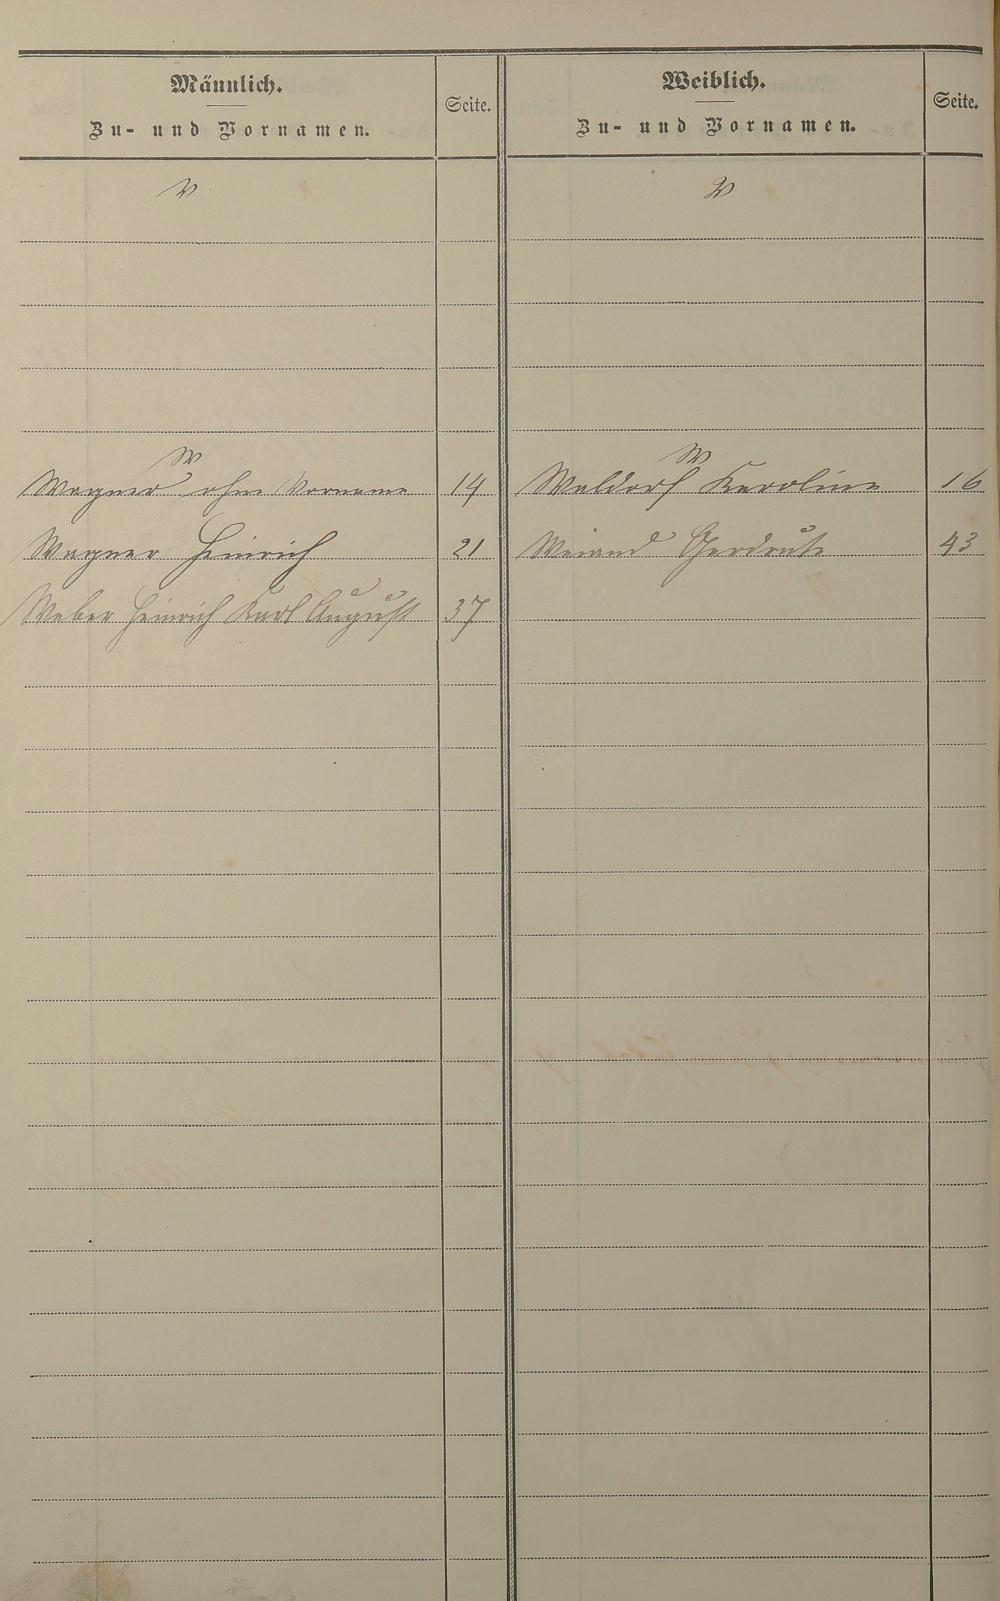 Männlich.
Zu- und Vornamen.
Seite.
Weiblich.
Zu- und Vornamen.
Seite.
V
V
W
Wagner ohne Vorname 14
Wagner Heinrich 21
Weber Heinrich Karl August 37
W
Waldorf Karoline 16
Weiand Gerdrute 43